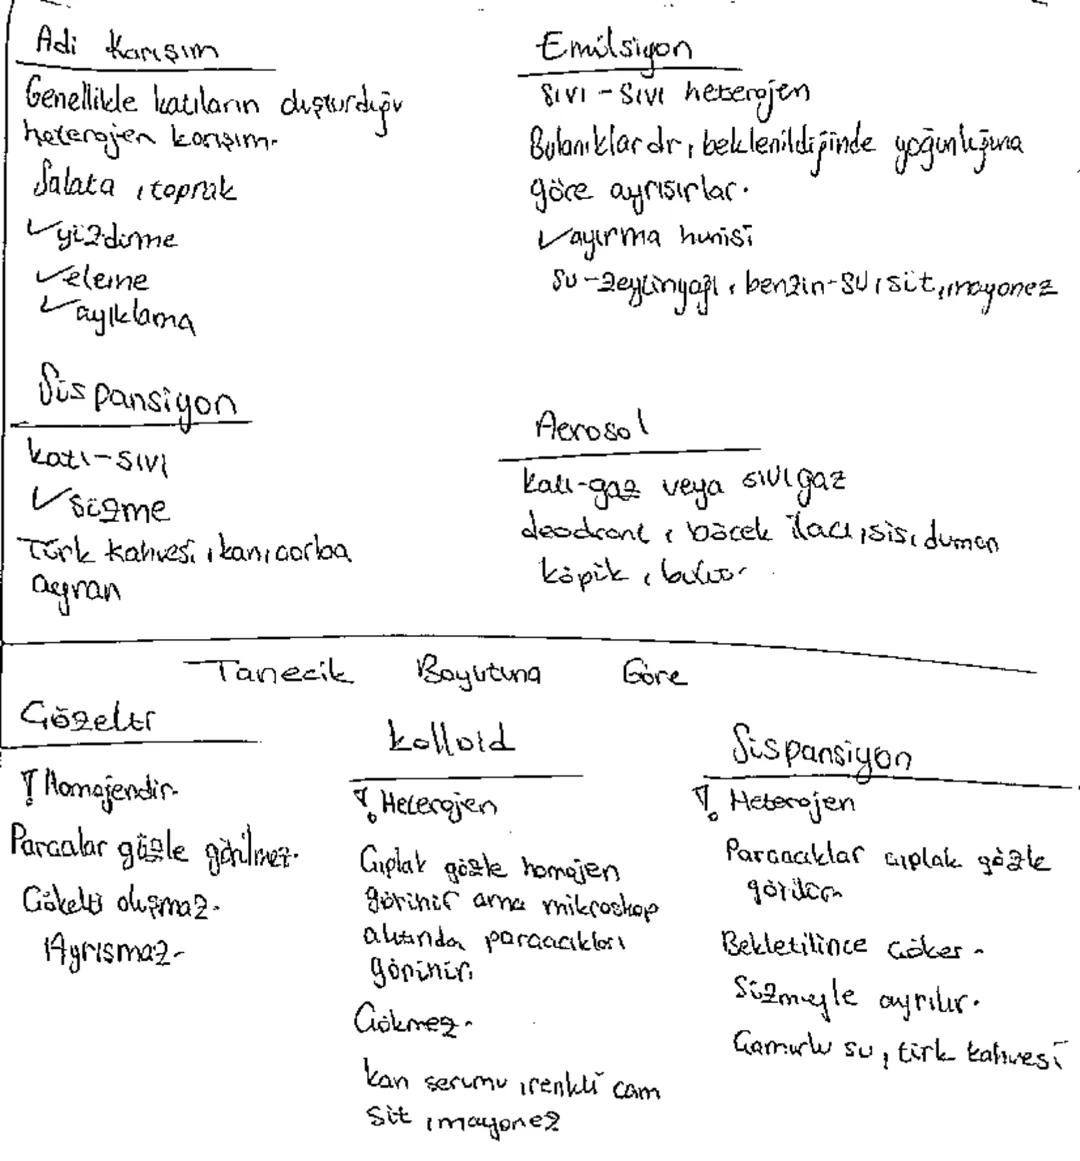 Adi Karışım
Genellikle katıların oluşturduğu
heterojen karışım.
Salata, toprak
✓yüzdürme
✓eleme
✓ayıklama
Emülsiyon
sıvı - sıvı heterojen
Bulanıklardır, beklenildiğinde yoğunluğuna
göre ayrışırlar.
✓ayırma hunisi
su-zeytinyağı, benzin-su, süt, mayonez
Süspansiyon
katı-sıvı
✓süzme
Türk kahvesi, kan, çorba
ayran
Aerosol
katı-gaz veya sıvı gaz
deodrant, böcek ilacı, sis, duman
köpük, bulut
Tanecik Boyutuna Göre
Çözelti
! Homojendir.
Parçalar gözle görülmez.
Çökelti oluşmaz.
Ayrışmaz.
kolloid
! Heterojen
Çıplak gözle homojen
görünür ama mikroskop
altında parçacıkları
görünür.
Çökmez.
kan serumu, renkli cam
süt, mayonez
Süspansiyon
! Heterojen
Parçacıklar çıplak gözle
görülür.
Bekletilince çöker.
Süzmeyle ayrılır.
Çamurlu su, türk kahvesi